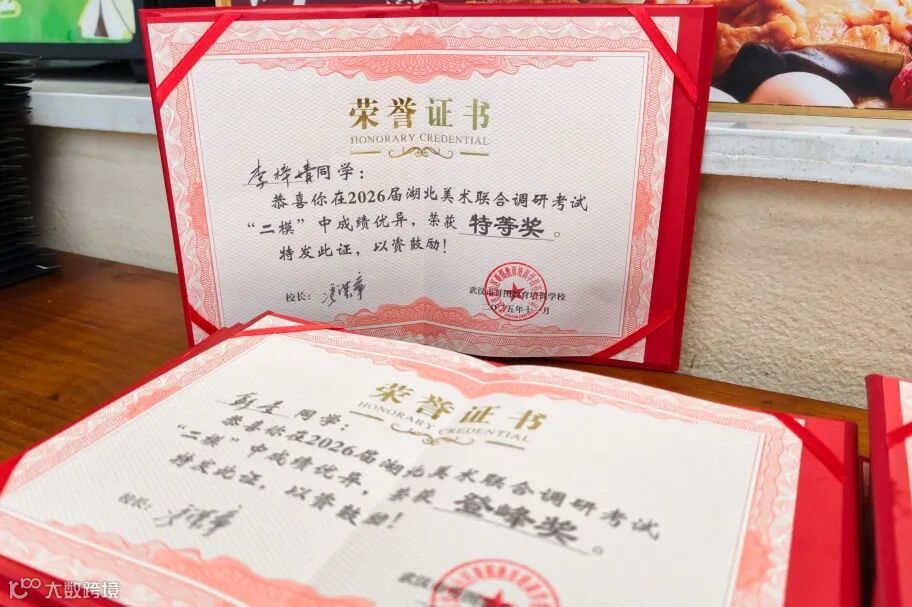 荣誉证书
HONORARY CREDENTIAL
李梓婧同学：
恭喜你在2026届湖北美术联合调研考试
“二模”中成绩优异，荣获 特等奖 。
特发此证，以资鼓励！
校长：
武汉市
教育培训学校
二〇二五年十一月
荣誉证书
HONORARY CREDENTIAL
同学：
恭喜你在2026届湖北美术联合调研考试
“二模”中成绩优异，荣获 登峰奖 。
特发此证，以资鼓励！
校长：
武汉
大数跨境